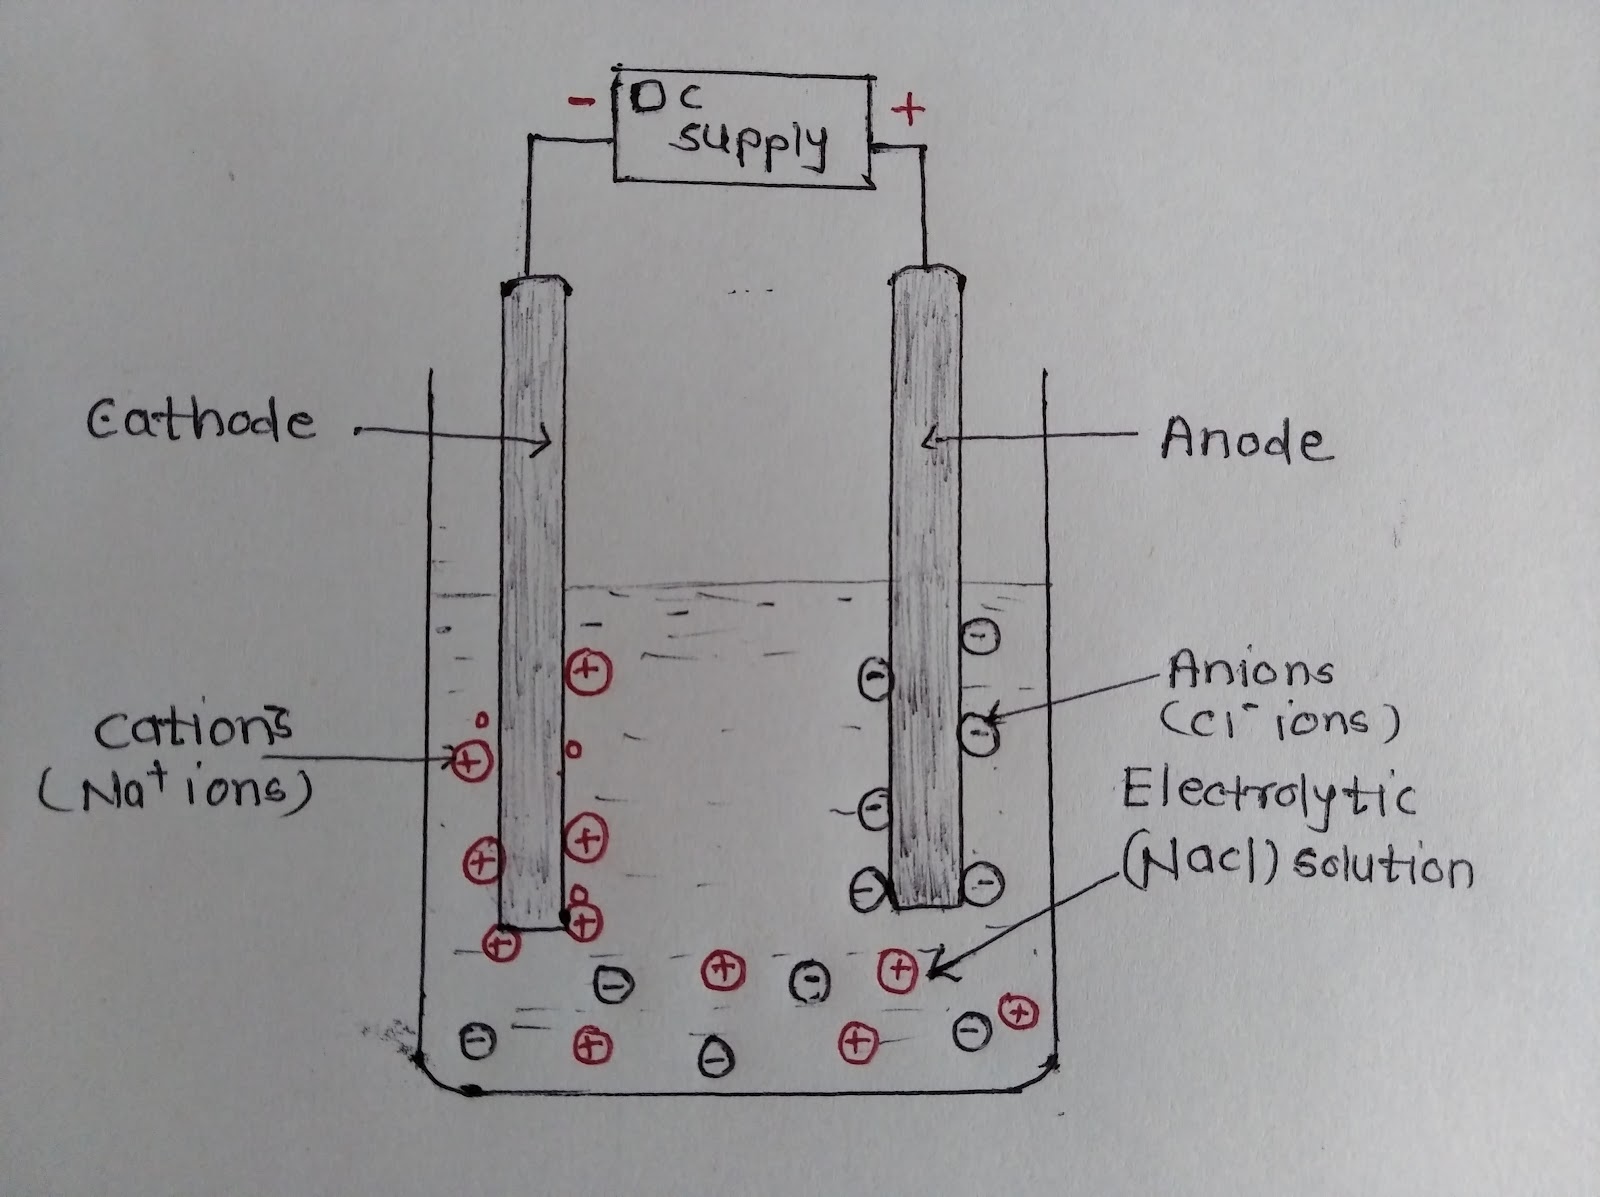 - DC +
supply
Cathode
Anode
Cations
(Na+ ions)
Anions
(Cl- ions)
Electrolytic
(Nacl) solution